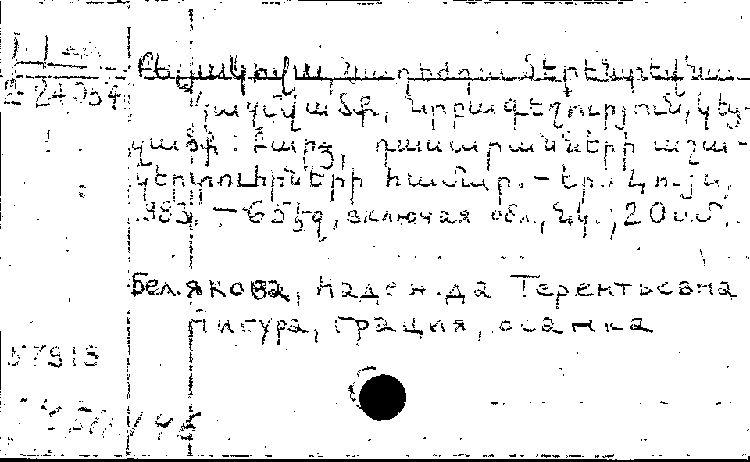 Բելյակովա, Նադեժդա Տերենտևնա
Կազմվածք, նրբագեղություն, կեց-
վածք: Բարձր, դասարանների աշա-
կերտուհիների համար. – Եր.: Լույս,
983. – 65 էջ, включая обл., նկ.; 20 սմ.
Белякова, Надежда Терентьевна
Фигура, грация, осанка
57913